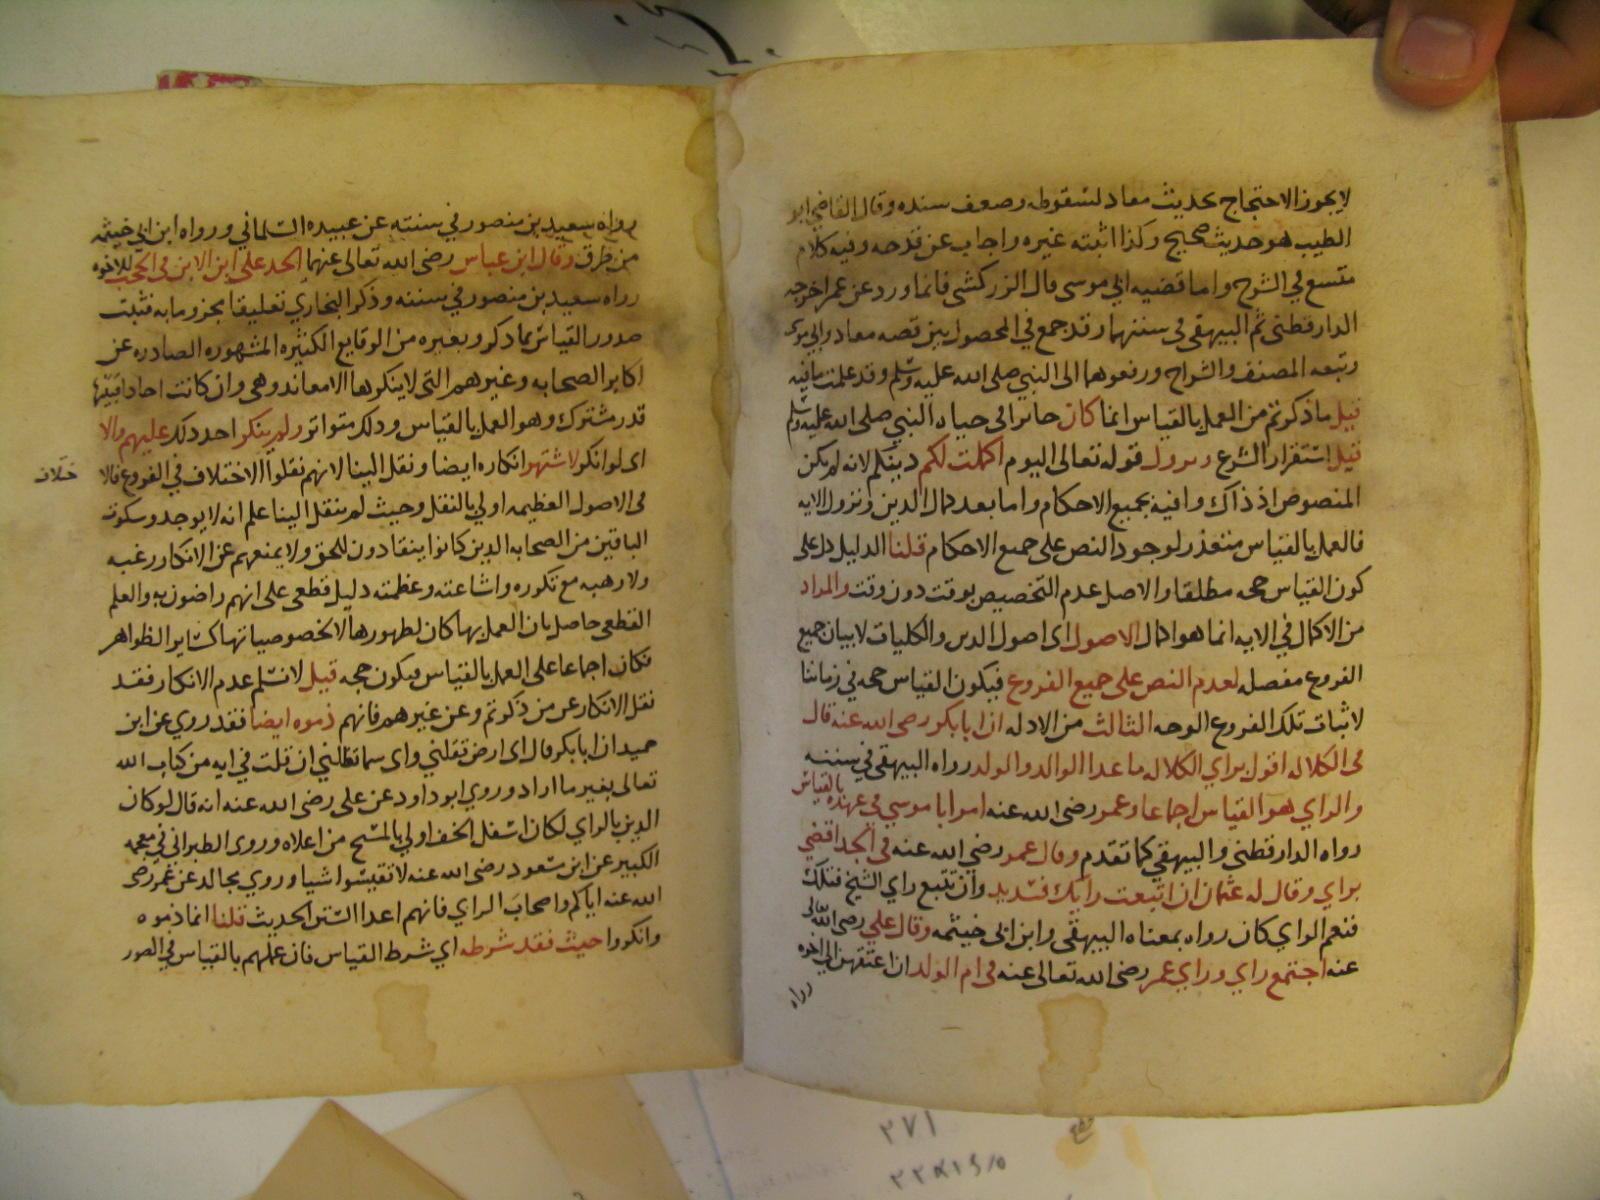 لا يجوز الاحتجاج بحديث معاد لسقوطه وضعف سنده وقال القاضي ابو
الطيب هو حديث صحيح وكذا اثبته غيره واجاب عن قدحه وفيه كلام
متسع في الشرح واما قضيه ابي موسى قال الزركشى فانما ورد عن عمر اخرجه
الدارقطنى ثم البيهقى فى سننهما وقد جمع في المحصول بين قصه معاد وابي موسى
وتبعه المصنف والشراح ورفعوهما الى النبي صلى الله عليه وسلم وقد علمت مافيه
قيل ما ذكرتم من العمل بالقياس انما كان جائزا في حياه النبي صلى الله عليه وسلم
قبل استقرار الشرع ونزول قوله تعالى اليوم اكملت لكم دينكم لانه لم يكن
المنصوص اذ ذاك وافية بجميع الاحكام واما بعد كمال الدين ونزول الايه
فالعمل بالقياس متعذر لوجود النص على جميع الاحكام قلنا الدليل دل على
كون القياس حجه مطلقا والاصل عدم التخصيص بوقت دون وقت والمراد
من الاكمال في الايه انما هو اكمال الاصول اى اصول الدين والكليات لا بيان جميع
الفروع مفصله لعدم النص على جميع الفروع فيكون القياس حجه في زماننا
لاثبات تلك الفروع الوجه الثالث من الادله ان ابا بكر رضى الله عنه قال
فى الكلاله اقول براي الكلاله ما عدا الوالد والولد رواه البيهقى في سننه
والراي هو القياس اجماعا وعمر رضى الله عنه امر ابا موسي في عهده بالقياس
رواه الدارقطنى والبيهقي كما تقدم وقال عمر رضي الله عنه فى الجد اقضي
براي وقال له عثمان ان اتبعت رايك فسديد وان تتبع راي الشيخ قبلك
فنعم الراي كان رواه بمعناه البيهقى وابن ابى خيثمه وقال علي رضى الله تعالى
عنه اجتمع راي وراي عمر رضى الله تعالى عنه فى ام الولد ان
رواه
رواه سعيد بن منصور في سننه عن عبيده السلماني ورواه ابن ابي خيثمه
من طرق وقال ابن عباس رضى الله تعالى عنهما الجد على ابن الابن فى الحجب للاخوه
رواه سعيد بن منصور في سننه وذكر البخاري تعليقا بجزوما به فثبت
صدور القياس بما ذكر وبغيره من الوقايع الكثيره المشهوره الصادره عن
اكابر الصحابه وغيرهم التى لا ينكرها الا معاند وهى وان كانت احادا فبينها
قدر مشترك وهو العمل بالقياس وذلك متواتر ولم ينكر احد ذلك عليهم والا
اى لو انكر لاشتهر انكاره ايضا ونقل الينا لانهم نقلوا الاختلاف في الفروع فالا
ختلاف
فى الاصول العظيمه اولي بالنقل وحيث لم ينقل الينا علم انه لا يوجد وسكوت
الباقين من الصحابه الذين كانوا ينقادون للحق ولا يمنعهم عن الانكار رغبه
ولا رهبه مع تكوره واشاعته وعظمته دليل قطعى على انهم راضون به والعلم
القطعى حاصل بان العمل بها كان لظهورها لا لخصوصياتها كساير الظواهر
فكان اجماعا على العمل بالقياس فيكون حجه قيل لا نسلم عدم الانكار فقد
نقل الانكار عن من ذكرتم وعن غيرهم فانهم ذموه ايضا فقد روي عن ابن
حميد ان ابا بكر قال اى ارض تقلني واى سما تظلني ان قلت في ايه من كتاب الله
تعالى بغير ما اراد وروي ابو داود عن على رضى الله عنه انه قال لو كان
الدين بالراي لكان اسفل الخف اولي بالمسح من اعلاه وروى الطبرانى في معجمه
الكبير عن ابن مسعود رضى الله عنه لا تقيسوا شيا وروي مجالد عن عمر رضى
الله عنه اياكم واصحاب الراي فانهم اعدا السنن الحديث قلنا انما ذموه
وانكروا حيث فقد شرطه اي شرط القياس فان عملهم بالقياس في الصور
٣٧١